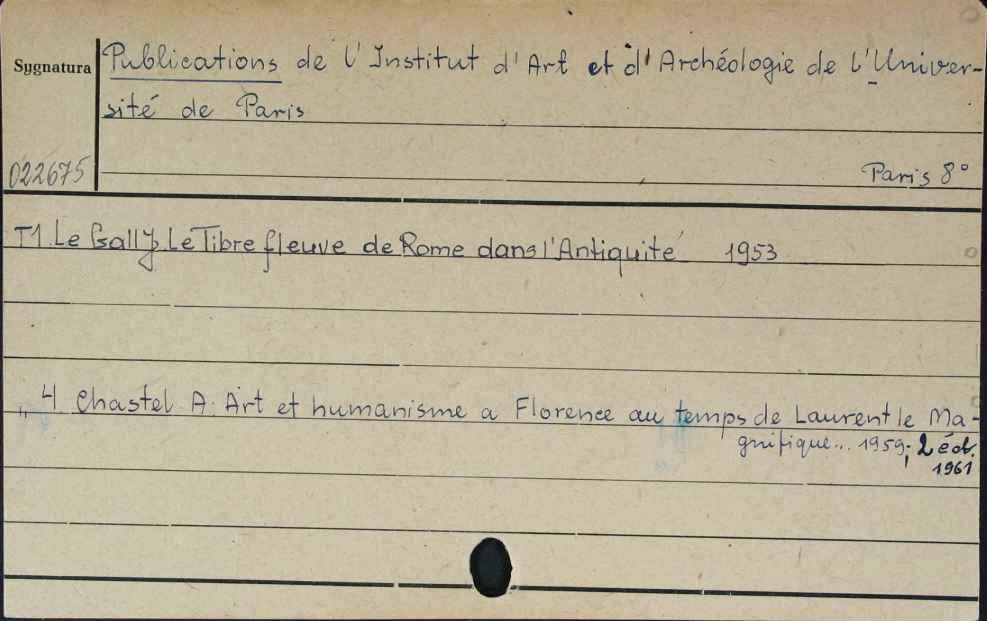 Publications de l'Institut d'Art et d'Archéologie de l'Univer-
Sygnatura
sité de Paris
022675
Paris 8°
T1. Le Gall J. Le Tibre fleuve de Rome dans l'Antiquité 1953
„ 4. Chastel A. Art et humanisme a Florence au temps de Laurent le Ma-
gnifique... 1959; 2 éd.
1961